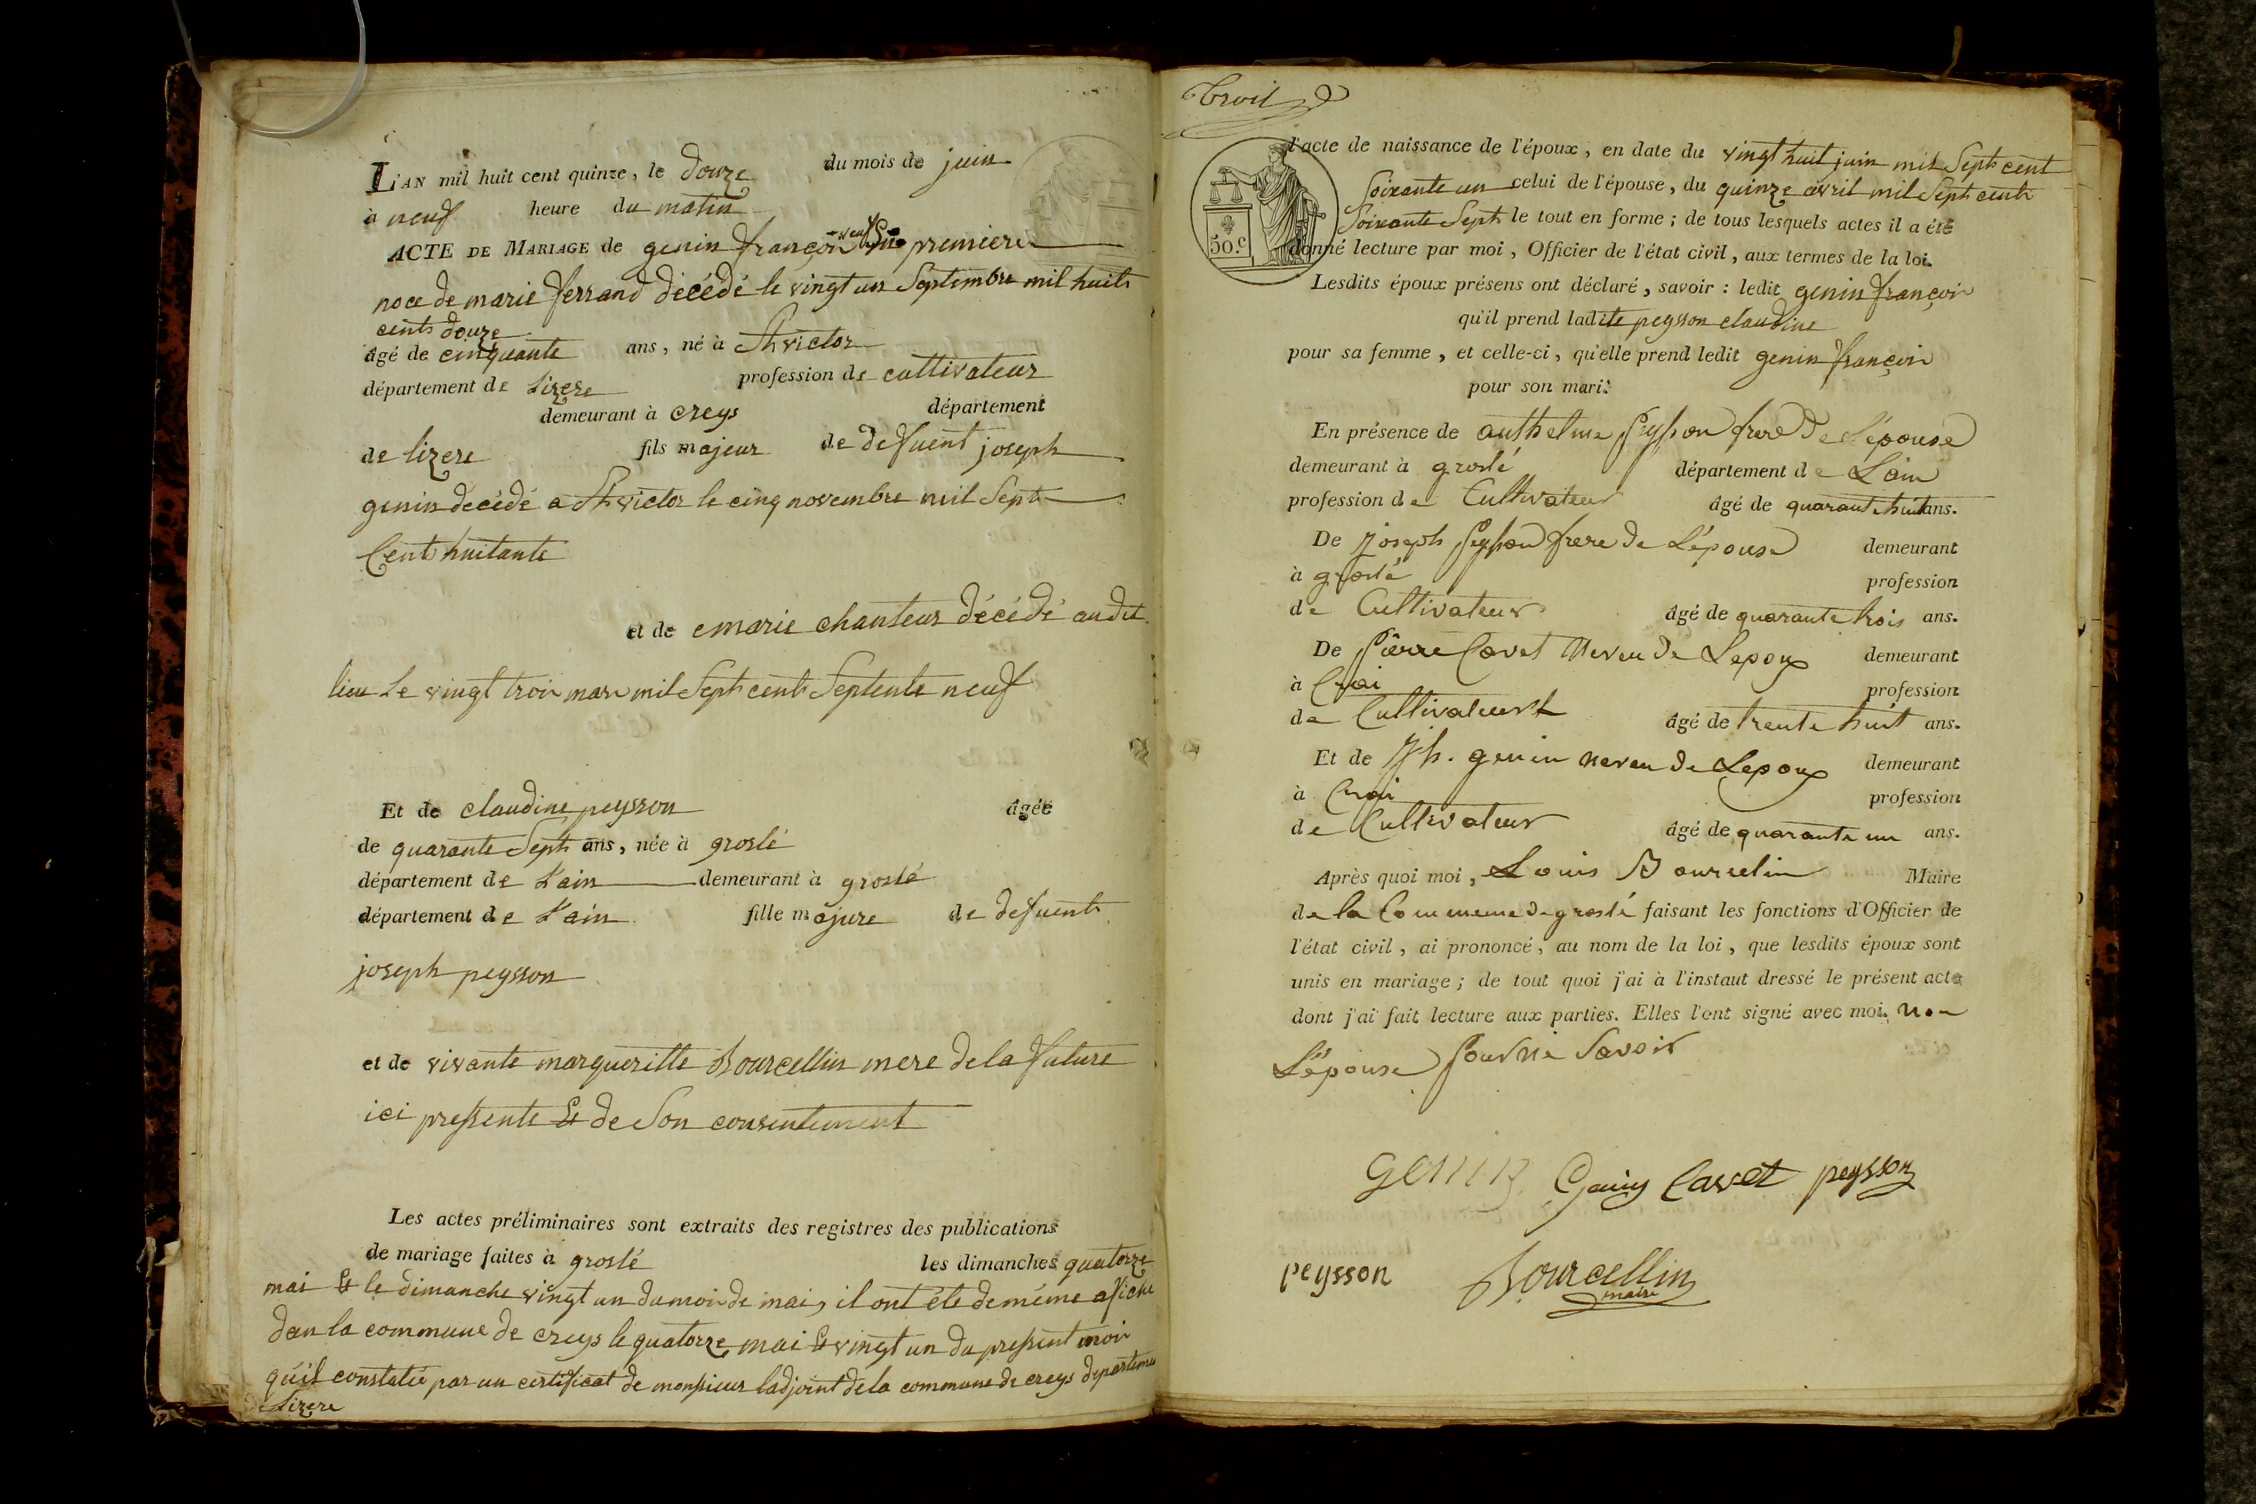 L'AN mil huit cent quinze, le douze du mois de juin
à neuf heure du matin
ACTE DE MARIAGE de genin françois veuf en premiere
noce de marie ferrand décédé le vingt un Septembre mil huit
cents douze
âgé de cinquante ans, né à St victor
département de Lizere profession de cultivateur
demeurant à creys département
de lizere fils majeur de defuent joseph
genin décédé a St victor le cinq novembre mil Sept
Cent huitante
et de marie chanteur décédé audit
lieu Le vingt trois mars mil Sept cents Septente neuf
Et de claudine peysson âgée
de quarante Sept ans, née à groslé
département de L'ain demeurant à groslé
département de L'ain fille majure de defuent
joseph peysson
et de vivante margueritte Bourcellin mere de la future
ici pressente Et de Son consentement
Les actes préliminaires sont extraits des registres des publications
de mariage faites à groslé les dimanches quatorze
mai Et le dimanche vingt un du mois de mai, il ont été de méme afiche
dan la commune de creys le quatorze mai Et vingt un du pressent mois
qu'il constatée par un certificat de monsieur ladjoint de la commune de creys departemen
Lizere
l'acte de naissance de l'époux, en date du vingt huit juin mil Sept cent
Soixante un celui de l'épouse, du quinze avril mil Sept cents
Soixante Sept le tout en forme; de tous lesquels actes il a été
donné lecture par moi, Officier de l'état civil, aux termes de la loi.
50.c
Lesdits époux présens ont déclaré, savoir: ledit genin françois
qu'il prend ladite peysson claudine
pour sa femme, et celle-ci, qu'elle prend ledit genin françois
pour son mari.
En présence de anthelme peysson frere de L'épouse
demeurant à groslé département de L'ain
profession de Cultivateur âgé de quarante huit ans.
De joseph peysson frere de L'épouse demeurant
à groslé profession
de Cultivateur âgé de quarante trois ans.
De pierre Cavet neveu de Lepoux demeurant
à profession
de Cultivateur âgé de trente huit ans.
Et de Jh. genin neveu de Lepoux demeurant
à profession
de Cultivateur âgé de quarante un ans.
Après quoi moi, Louis Bourcelin Maire
de la Commune de groslé faisant les fonctions d'Officier de
l'état civil, ai prononcé, au nom de la loi, que lesdits époux sont
unis en mariage; de tout quoi j'ai à l'instaut dressé le présent acte
dont j'ai fait lecture aux parties. Elles l'ont signé avec moi. non
L'épouse pour ne Savoir
genin Genin Cavet peysson
peysson Bourcellin
maire